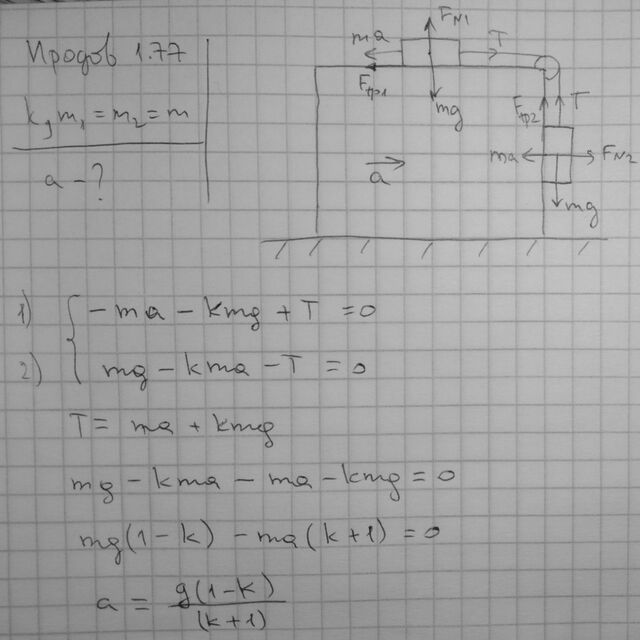 Иродов 1.77
k, m₁ = m₂ = m
a - ?
ma
F_N1
T
F_тр1
mg
a
F_тр2
T
ma
F_N2
mg
1) { -ma - kmg + T = 0
2) mg - kma - T = 0
T = ma + kmg
mg - kma - ma - kmg = 0
mg(1-k) - ma(k+1) = 0
a = g(1-k) / (k+1)